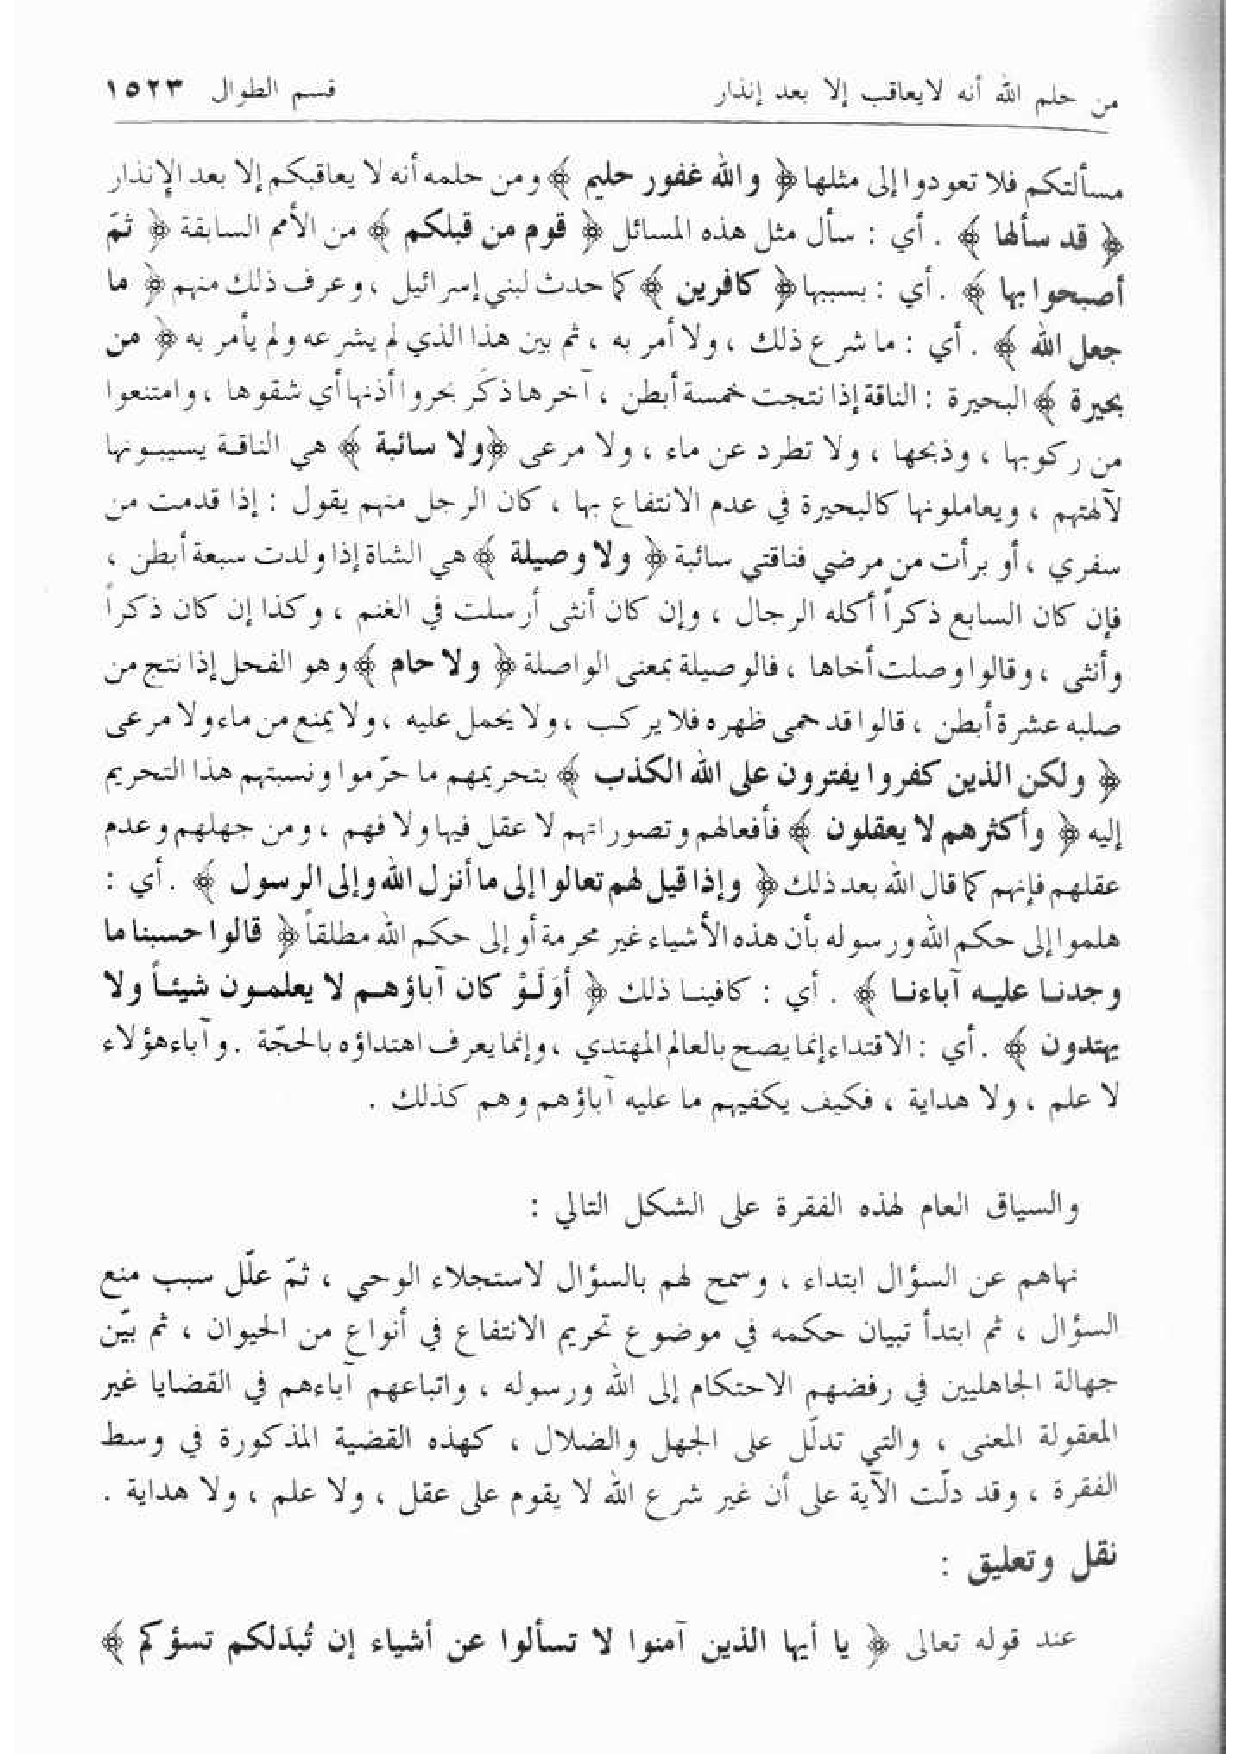 من حلم الله أنه لا يعاقب إلا بعد إنذار قسم الطوال ١٥٢٣
مسألتكم فلا تعودوا إلى مثلها ﴿ والله غفور حليم ﴾ ومن حلمه أنه لا يعاقبكم إلا بعد الإنذار
﴿ قد سألها ﴾ . أي : سأل مثل هذه المسائل ﴿ قوم من قبلكم ﴾ من الأمم السابقة ﴿ ثمّ
أصبحوا بها ﴾ . أي : بسببها ﴿ كافرين ﴾ كما حدث لبني إسرائيل ، وعرف ذلك منهم ﴿ ما
جعل الله ﴾ . أي : ما شرع ذلك ، ولا أمر به ، ثم بين هذا الذي لم يشرعه ولم يأمر به ﴿ من
بحيرة ﴾ البحيرة : الناقة إذا نتجت خمسة أبطن ، آخرها ذكَر بحروا أذنها أي شقوها ، وامتنعوا
من ركوبها ، وذبحها ، ولا تطرد عن ماء ، ولا مرعى ﴿ ولا سائبة ﴾ هي الناقة يسيبونها
لآلهتهم ، ويعاملونها كالبحيرة في عدم الانتفاع بها ، كان الرجل منهم يقول : إذا قدمت من
سفري ، أو برأت من مرضي فناقتي سائبة ﴿ ولا وصيلة ﴾ هي الشاة إذا ولدت سبعة أبطن ،
فإن كان السابع ذكراً أكله الرجال ، وإن كان أنثى أرسلت في الغنم ، وكذا إن كان ذكراً
وأنثى ، وقالوا وصلت أخاها ، فالوصيلة بمعنى الواصلة ﴿ ولا حام ﴾ وهو الفحل إذا نتج من
صلبه عشرة أبطن ، قالوا قد حمى ظهره فلا يركب ، ولا يحمل عليه ، ولا يمنع من ماء ولا مرعى
﴿ ولكن الذين كفروا يفترون على الله الكذب ﴾ بتحريمهم ما حرّموا ونسبتهم هذا التحريم
إليه ﴿ وأكثرهم لا يعقلون ﴾ فأفعالهم وتصوراتهم لا عقل فيها ولا فهم ، ومن جهلهم وعدم
عقلهم فإنهم كما قال الله بعد ذلك ﴿ وإذا قيل لهم تعالوا إلى ما أنزل الله وإلى الرسول ﴾ . أي :
هلموا إلى حكم الله ورسوله بأن هذه الأشياء غير محرمة أو إلى حكم الله مطلقاً ﴿ قالوا حسبنا ما
وجدنا عليه آباءنا ﴾ . أي : كافينا ذلك ﴿ أوَلَوْ كان آباؤهم لا يعلمون شيئاً ولا
يهتدون ﴾ . أي : الاقتداء إنما يصح بالعالم المهتدي ، وإنما يعرف اهتداؤه بالحجّة . وآباء هؤلاء
لا علم ، ولا هداية ، فكيف يكفيهم ما عليه آباؤهم وهم كذلك .
والسياق العام لهذه الفقرة على الشكل التالي :
نهاهم عن السؤال ابتداء ، وسمح لهم بالسؤال لاستجلاء الوحي ، ثمّ علّل سبب منع
السؤال ، ثم ابتدأ تبيان حكمه في موضوع تحريم الانتفاع في أنواع من الحيوان ، ثم بيّن
جهالة الجاهليين في رفضهم الاحتكام إلى الله ورسوله ، واتباعهم آباءهم في القضايا غير
المعقولة المعنى ، والتي تدلّل على الجهل والضلال ، كهذه القضية المذكورة في وسط
الفقرة ، وقد دلّت الآية على أن غير شرع الله لا يقوم على عقل ، ولا علم ، ولا هداية .
نقل وتعليق :
عند قوله تعالى ﴿ يا أيها الذين آمنوا لا تسألوا عن أشياء إن تُبدَلكم تسؤكم ﴾